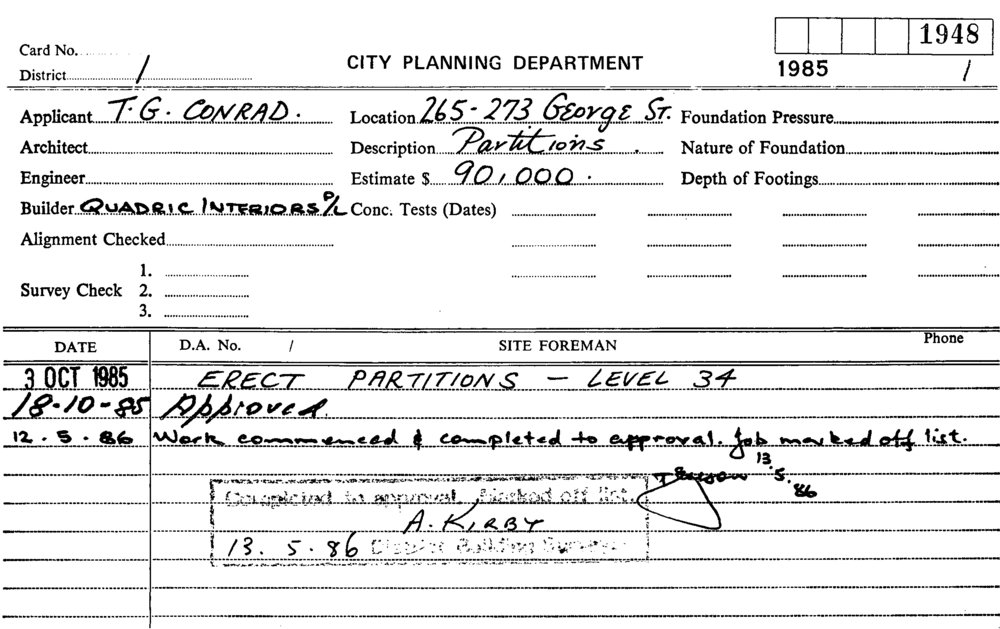 1948
Card No.
CITY PLANNING DEPARTMENT
District /
1985 /
Applicant T. G. CONRAD. Location 265-273 GEORGE ST. Foundation Pressure
Architect Description Partitions. Nature of Foundation
Engineer Estimate $ 90,000. Depth of Footings
Builder QUADRIC INTERIORS P/L Conc. Tests (Dates)
Alignment Checked
1.
Survey Check 2.
3.
DATE D.A. No. / SITE FOREMAN Phone
3 OCT 1985 ERECT PARTITIONS - LEVEL 34
18-10-85 Approved.
12.5.86 Work commenced & completed to approval. Job marked off list.
13.5.86
Completed to approval. Marked off list.
A. KIRBY
13.5.86 District Building Surveyor